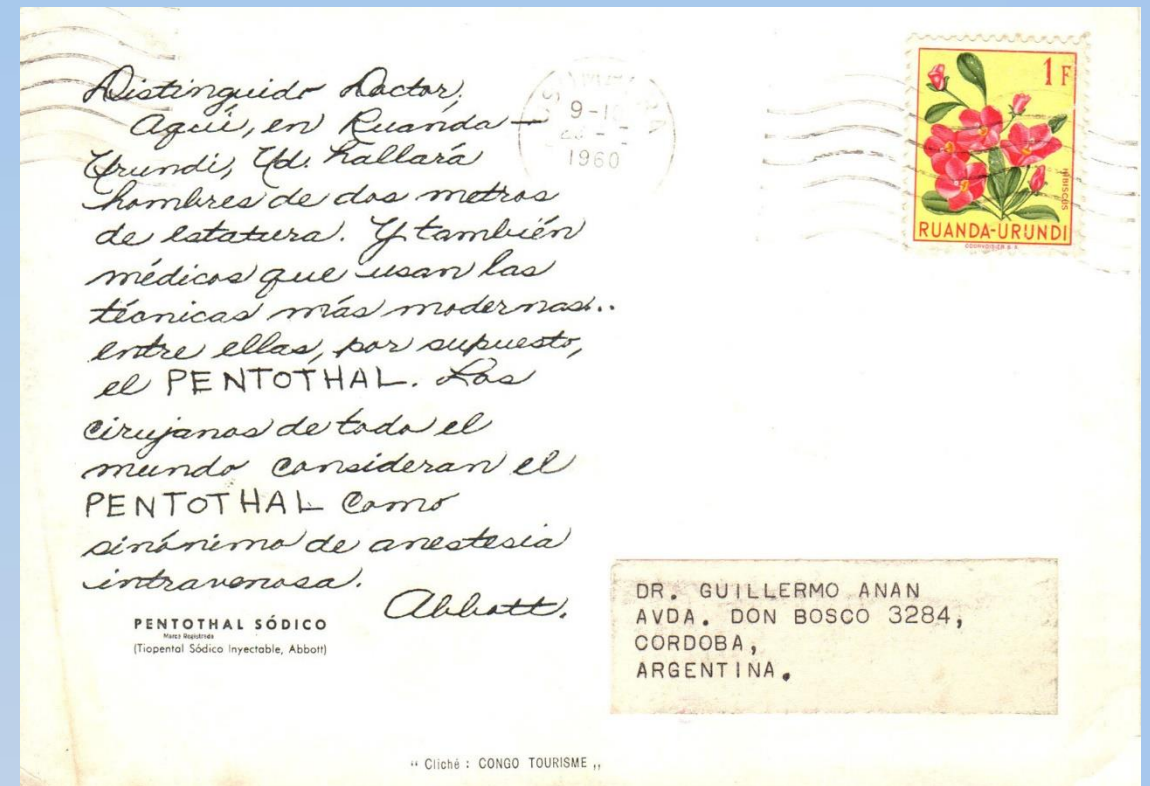 Distinguido Doctor,
Aquí, en Ruanda-
Urundi, Ud. hallará
hombres de dos metros
de estatura. Y también
médicos que usan las
técnicas más modernas..
entre ellas, por supuesto,
el PENTOTHAL. Los
cirujanos de todo el
mundo consideran el
PENTOTHAL como
sinónimo de anestesia
intravenosa.
Abbott.
PENTOTHAL SÓDICO
Marca Registrada
(Tiopental Sódico Inyectable, Abbott)
1960
1 F
HIBISCUS
RUANDA-URUNDI
DR. GUILLERMO ANAN
AVDA. DON BOSCO 3284,
CORDOBA,
ARGENTINA.
" Cliché : CONGO TOURISME „